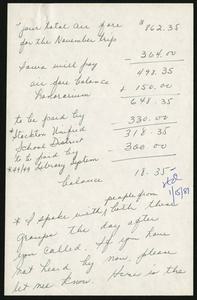 your total air fare $862.35
for the November trip
364.00
Iowa will pay 498.35
air fare balance
Honorarium + 150.00
648.35
to be paid by 330.00
*Stockton Unified 318.35
School District
to be paid by - 300.00
*49/99 Library System
balance 18.35
1/5/87
people from
* I spoke with both these
groups the day after
you called. If you have
not heard by now, please
let me know. Here is the